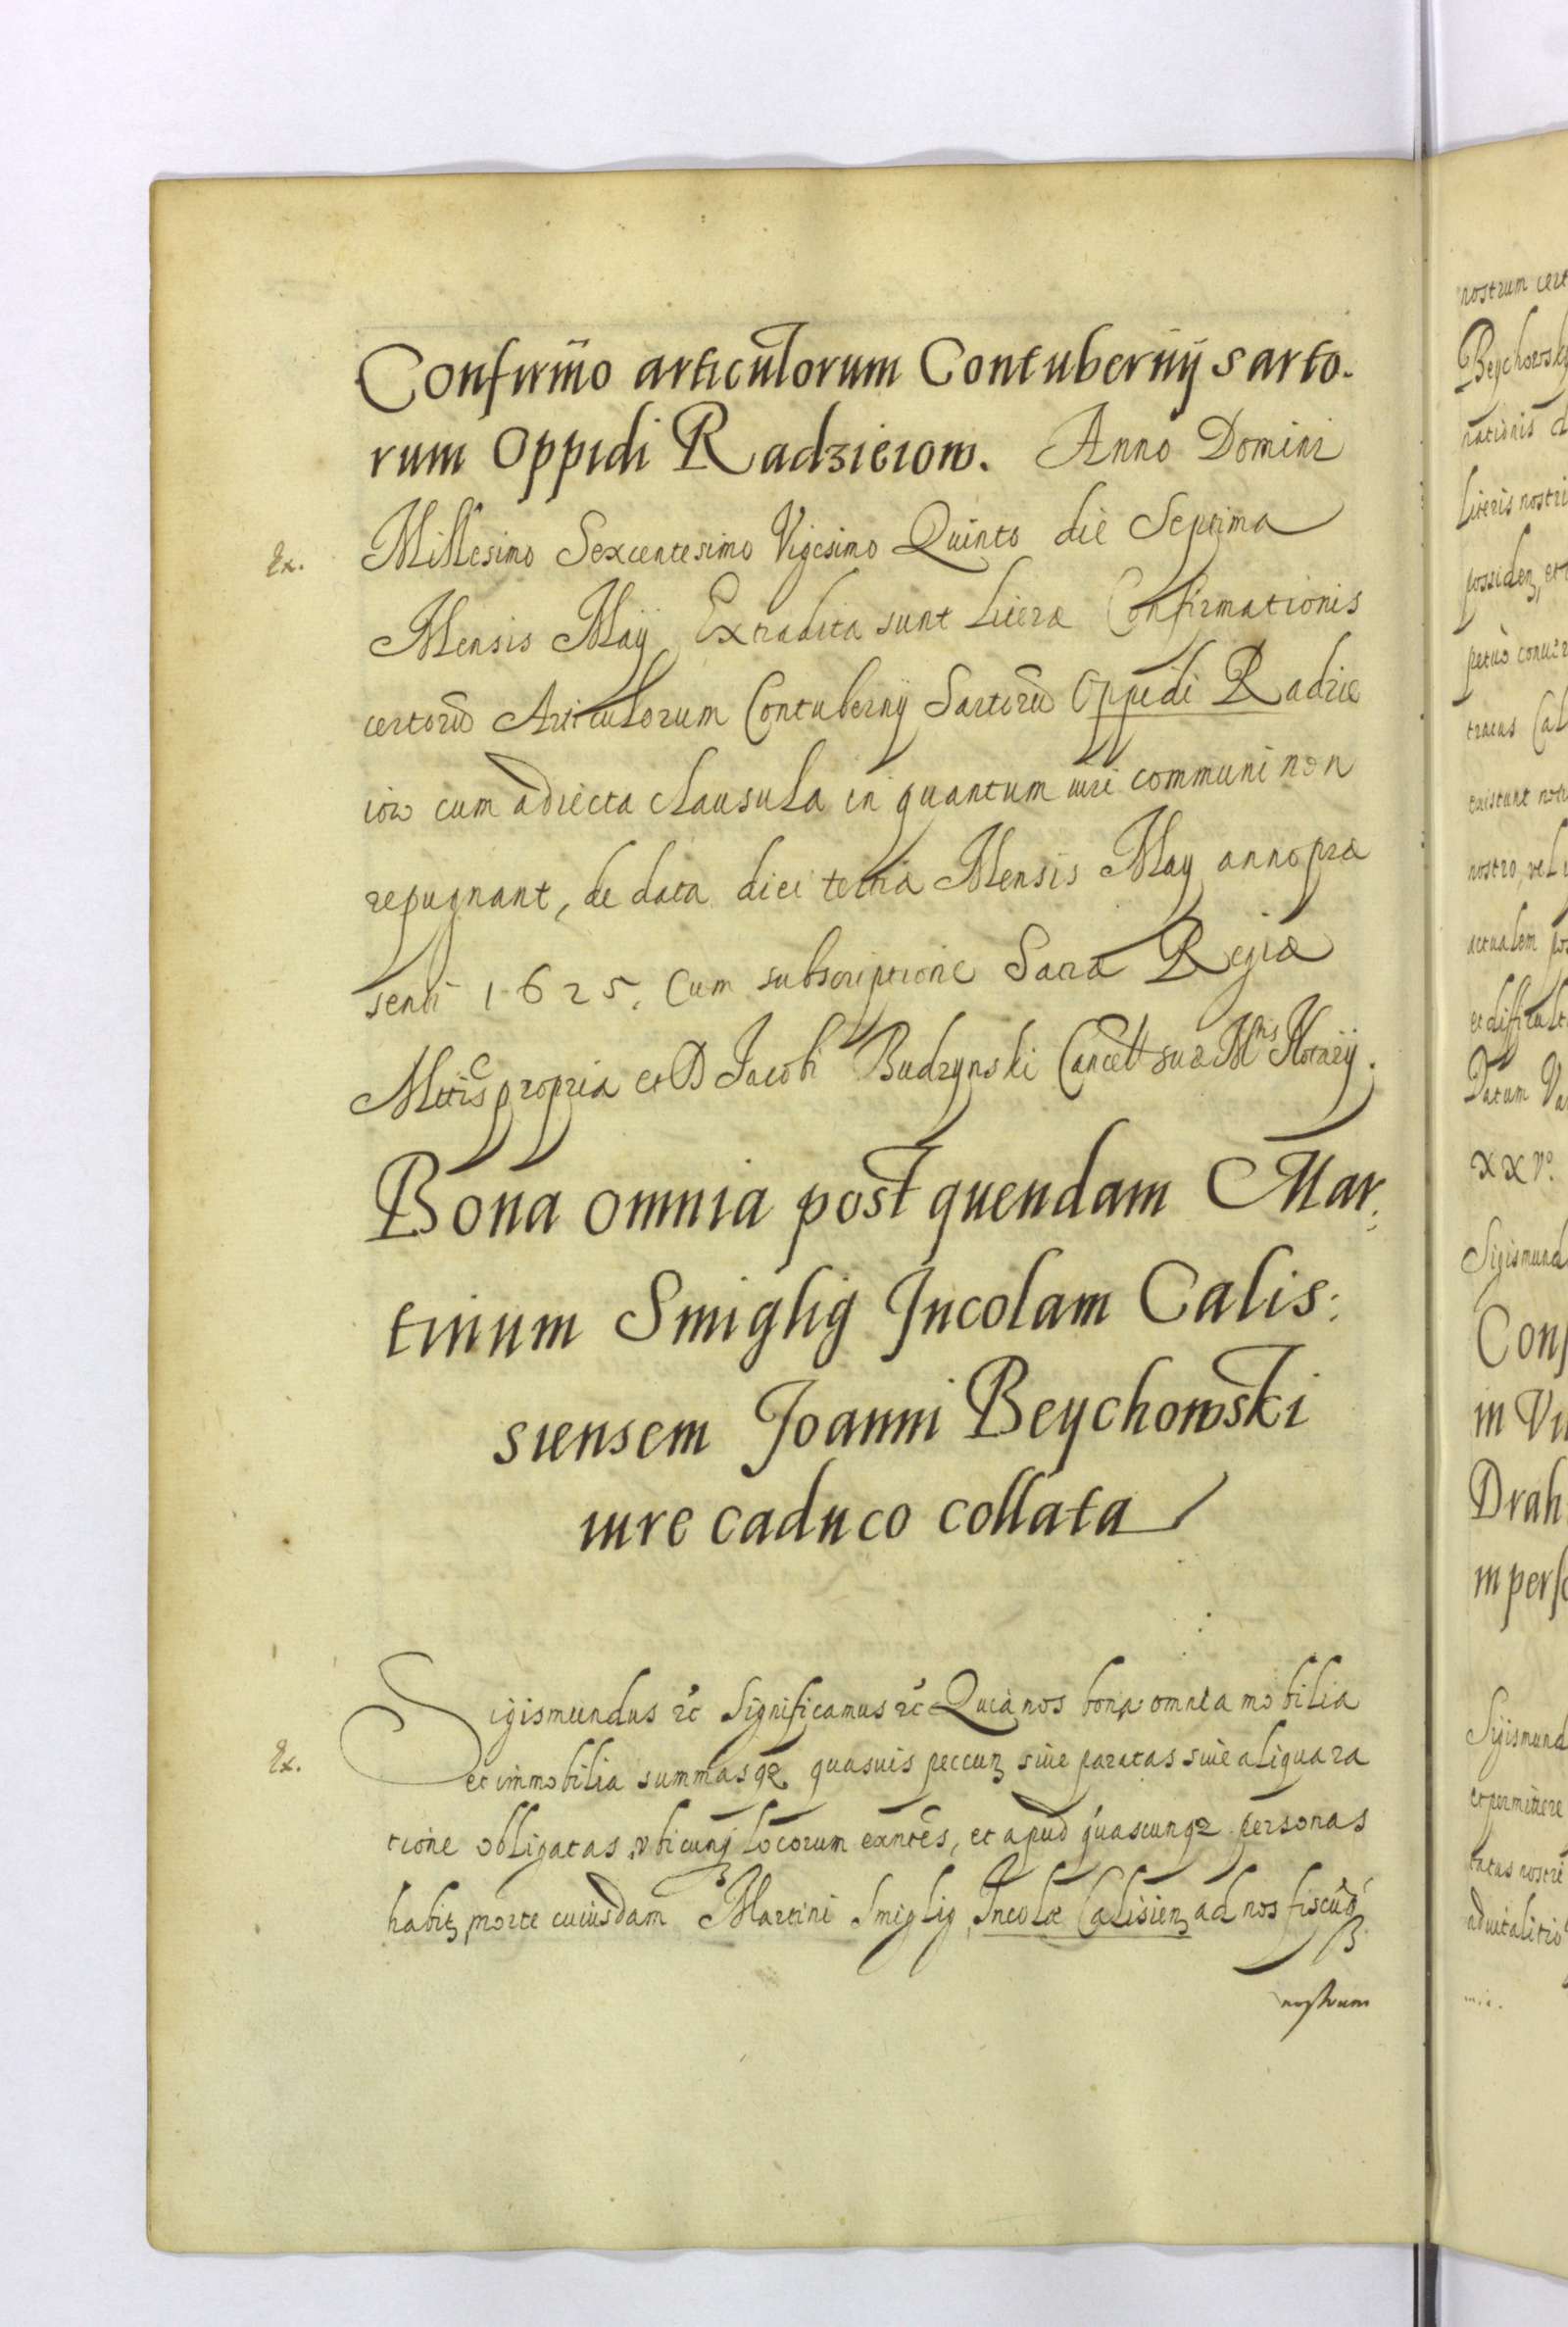 Confirm̃o articulorum Contubernÿ sarto.
rum Oppidi Radzieiow. Anno Domini
Ex. Millesimo Sexcentesimo Vigesimo Quinto die Septima
Mensis Maÿ Extradita sunt Literæ Confirmationis
certorũ Articulorum Contubernÿ Sartorũ Oppidi Radzie
iow cum adiecta clausula in quantum iuri communi non
repugnant, de data diei tertia Mensis May anno præ
senti 1625. Cum subscriptione Sacræ Regiæ
Mttis propria et D Jacobi Budzynski Cancell suæ Mtis Notarÿ.
Bona omnia post quendam Mar:
tinum Smiglig Incolam Calis:
siensem Joanni Beychowski
iure caduco collata
Sigismundus &c Significamus &c Quia nos bona omnia mobilia
Ex. et immobilia summasqꝫ quasuis peccunꝫ siue paratas siue aliqua ra
tione obligatas vbicunqꝫ locorum exñtes, et apud quascunqꝫ personas
habitꝫ morte cuiusdam Martini Smiglig Incolæ Calisienꝫ ad nos fiscũqꝫ
nostrum
nostrum cert
Beychowsk
nationis
Literis nostri
possidenꝫ et
petuo
Cal
nostro, vel
actualem
et difficult
Datum Va
XXVº.
Sigismund
Con
in Vi
Drah
in pers
Sigismund
et permittere
nostri
aduitalitio